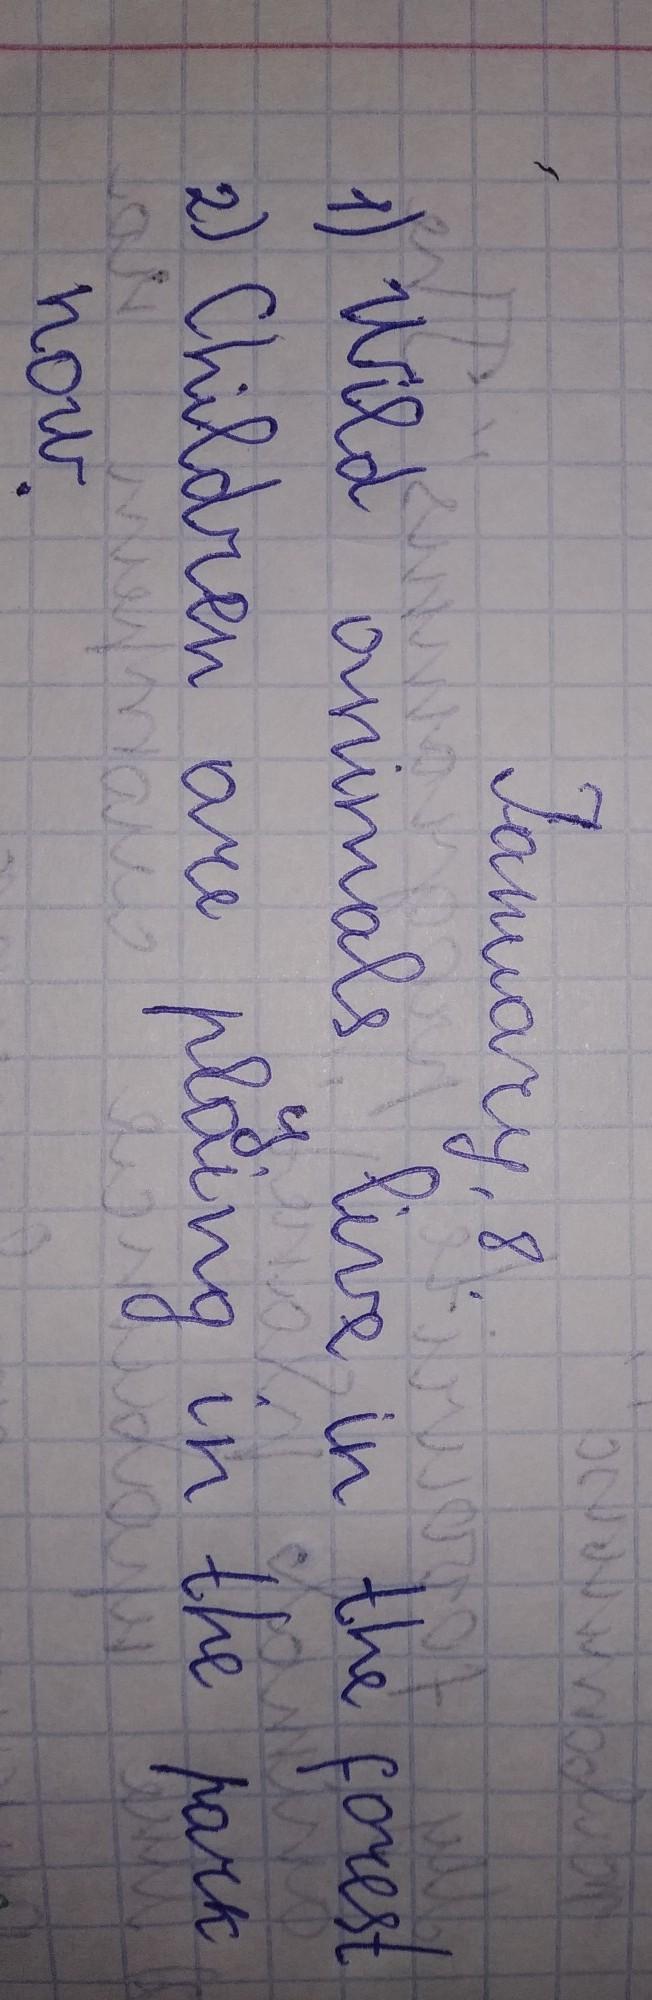 January, 8.
1) Wild animals live in the forest
2) Children are playing in the park
now.